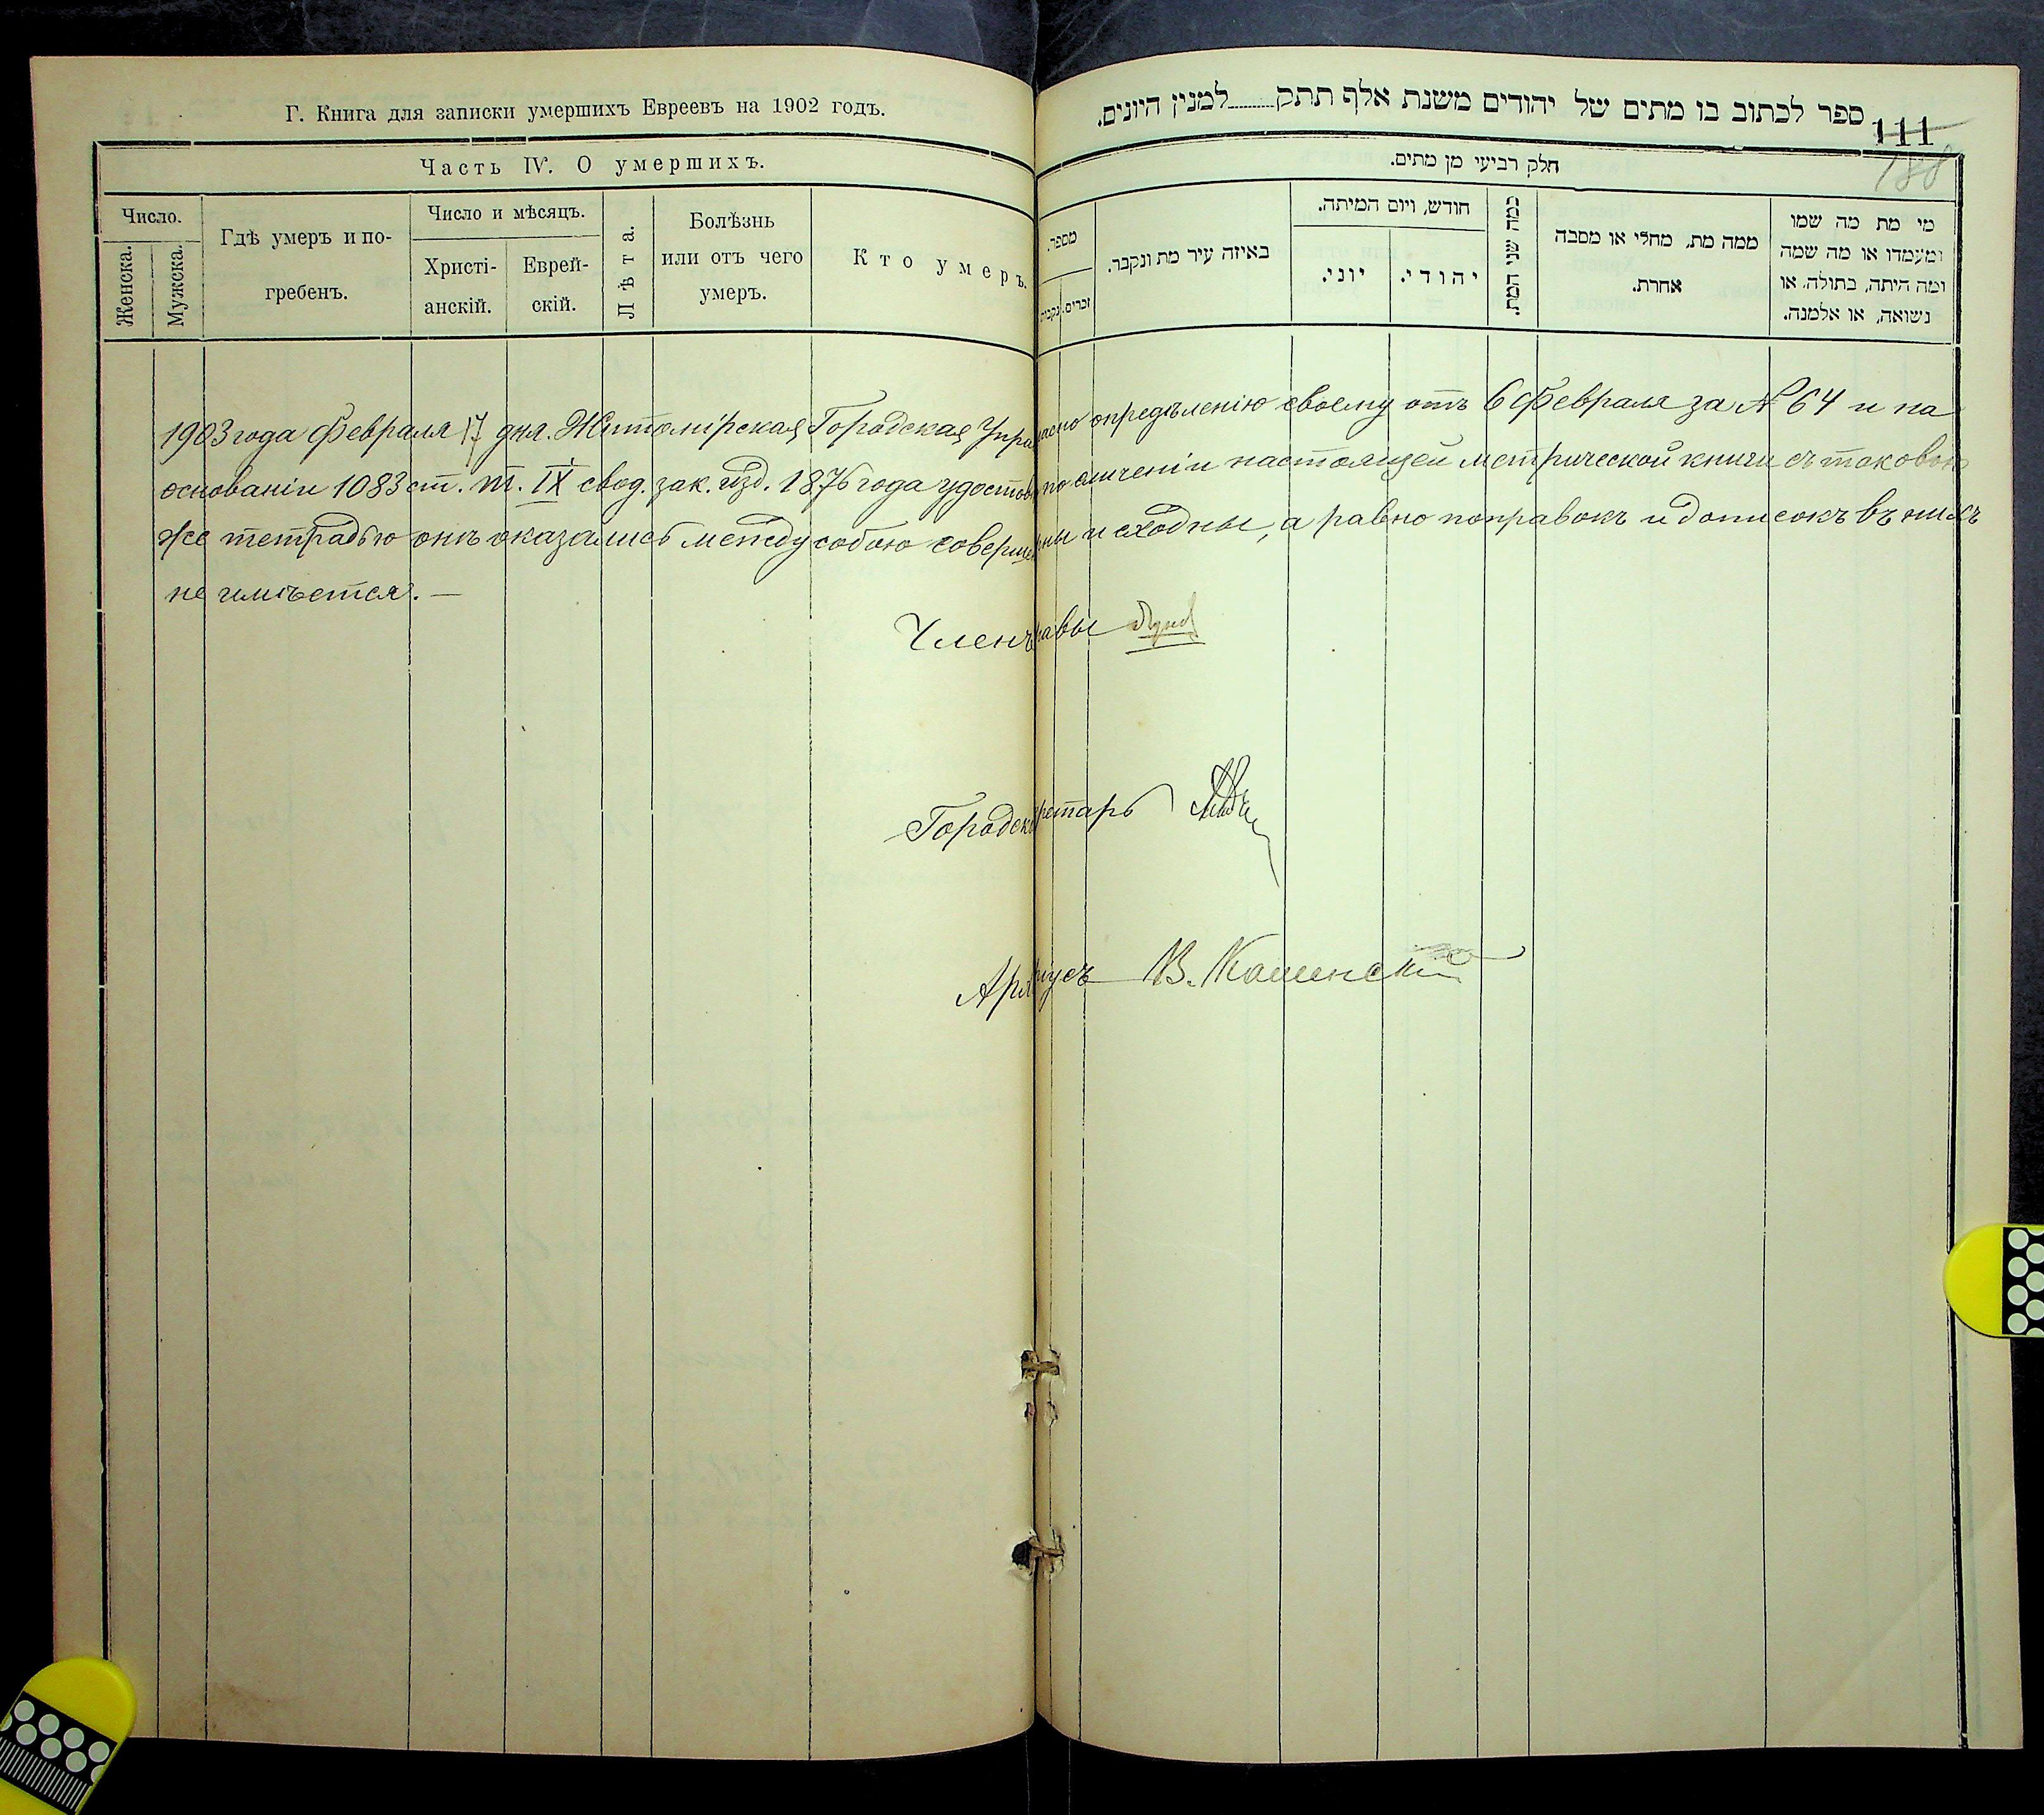 Г. Книга для записки умершихъ Евреевъ на 1902 годъ.
Часть IV. О умершихъ.
Число.
Женска.
Мужска.
Гдѣ умеръ и по-
гребенъ.
Число и мѣсяцъ.
Христі-
анскій.
Еврей-
скій.
Лѣта.
Болѣзнь
или отъ чего
умеръ.
Кто умеръ.
ספר לכתוב בו מתים של יהודים משנת אלף תתק למנין היונים.
111
188
חלק רביעי מן מתים.
מספר.
זכרים.
נקבות
באיזה עיר מת ונקבר.
חודש, ויום המיתה.
יוני.
יהודי.
כמה שני המת.
ממה מת, מחלי או מסבה
אחרת.
מי מת מה שמו
ומעמדו או מה שמה
ומה היתה, בתולה, או
נשואה, או אלמנה.
1903 года Февраля 17 дня. Житомірская Городская Упра асно опредѣленію своему отъ 6 Февраля за № 64 и на
основаніи 1083 ст. т. IX свод. зак. изд. 1876 года удостов по сличеніи настоящей метрической книги съ таковою
же тетрадью онѣ оказались между собою соверше ны и сходны, а равно поправокъ и дописокъ въ нихъ
не имѣется. —
Членъ равы
Городск ретарь
Арх іусъ В. Каменскій